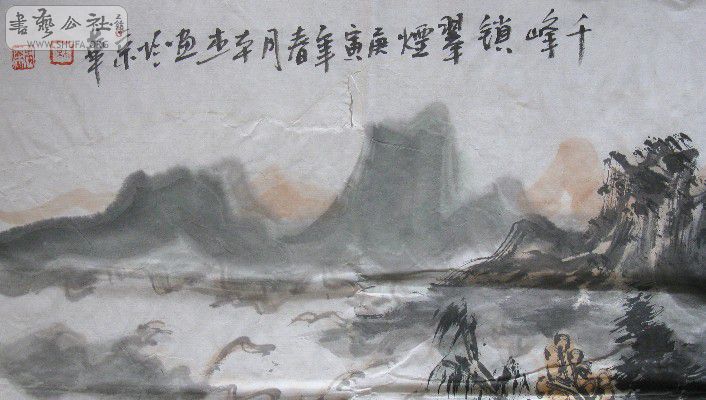 千峰鎖翠煙庚寅年春月李杰画於京華
書藝公社
WWW.SHUFA.ORG